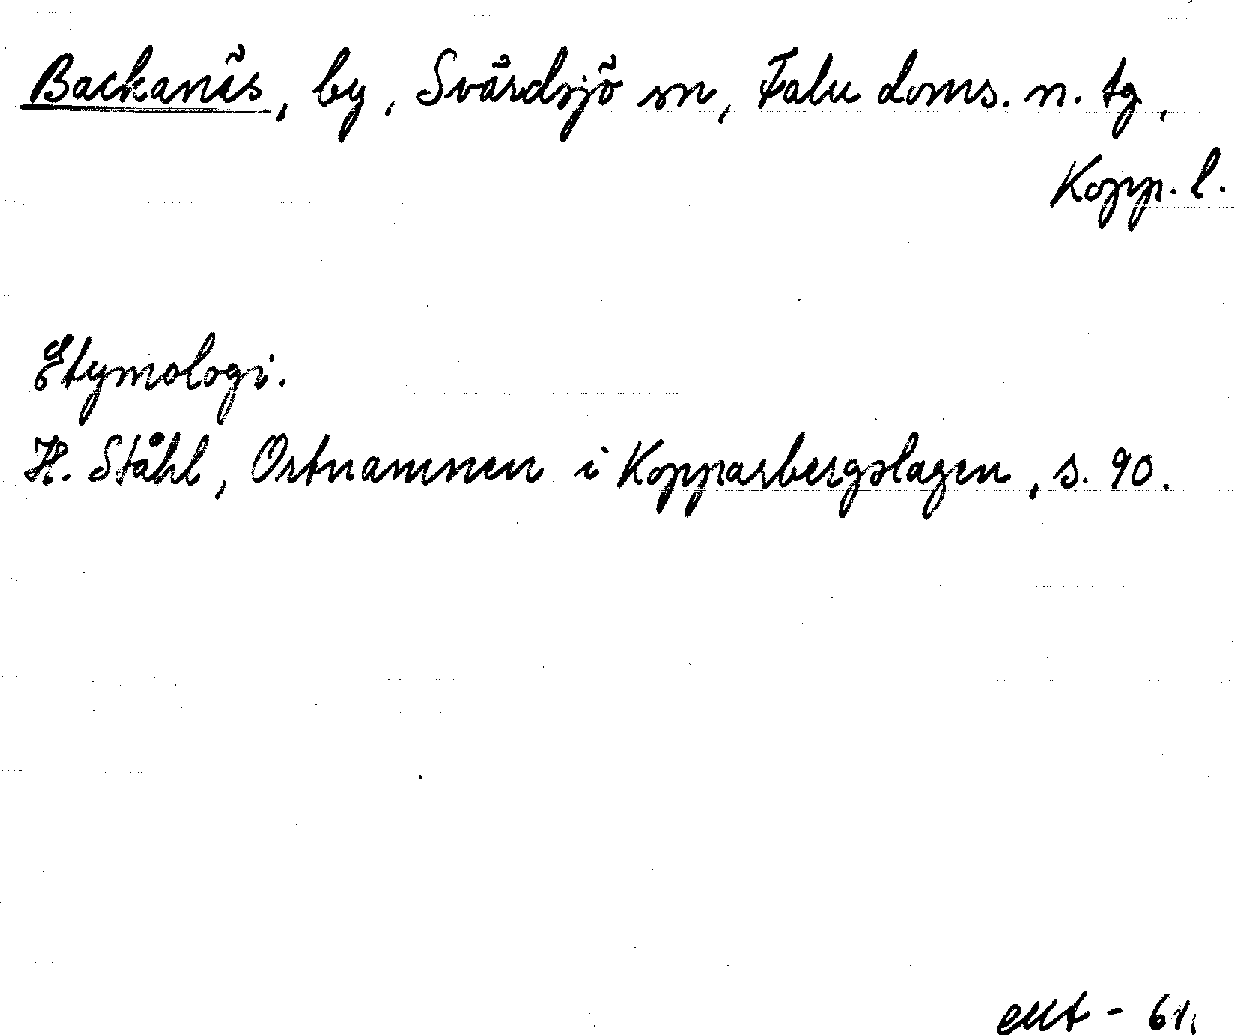 Backanäs, by, Svärdsjö sn, Falu doms. n. tg,
Kopp. l.
Etymologi.
H. Ståhl, Ortnamnen i Kopparbergslagen, s. 90.